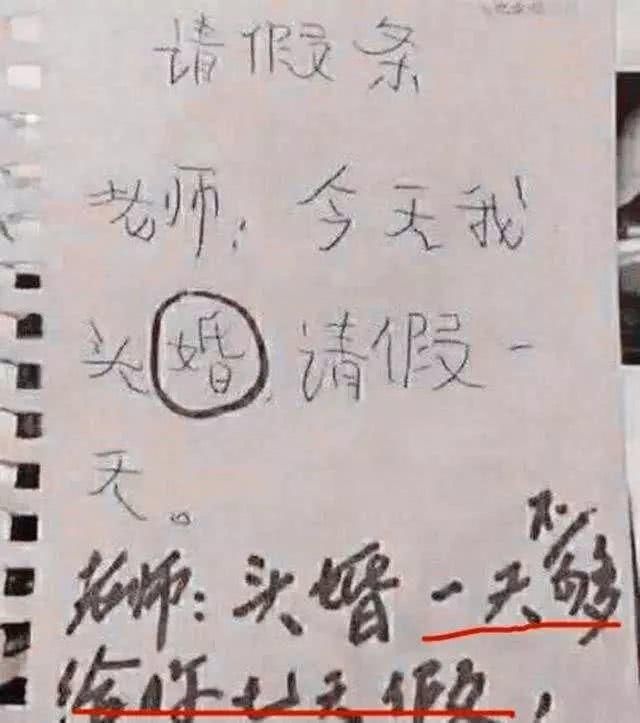 请假条
老师：今天我
头婚，请假一
天。
老师：头婚一天不够
给你七天假！